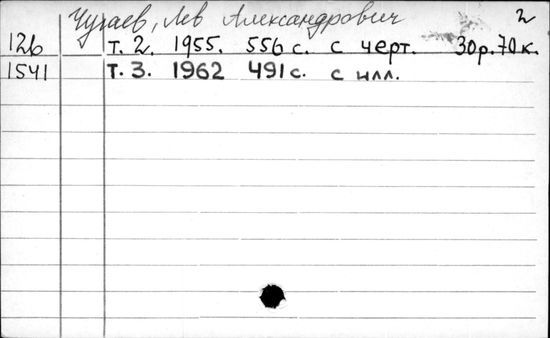 Чугаев, Лев Александрович 2
126 т. 2. 1955. 556 с. с черт. 30р.70к.
1541 т. 3. 1962 491 с. с илл.